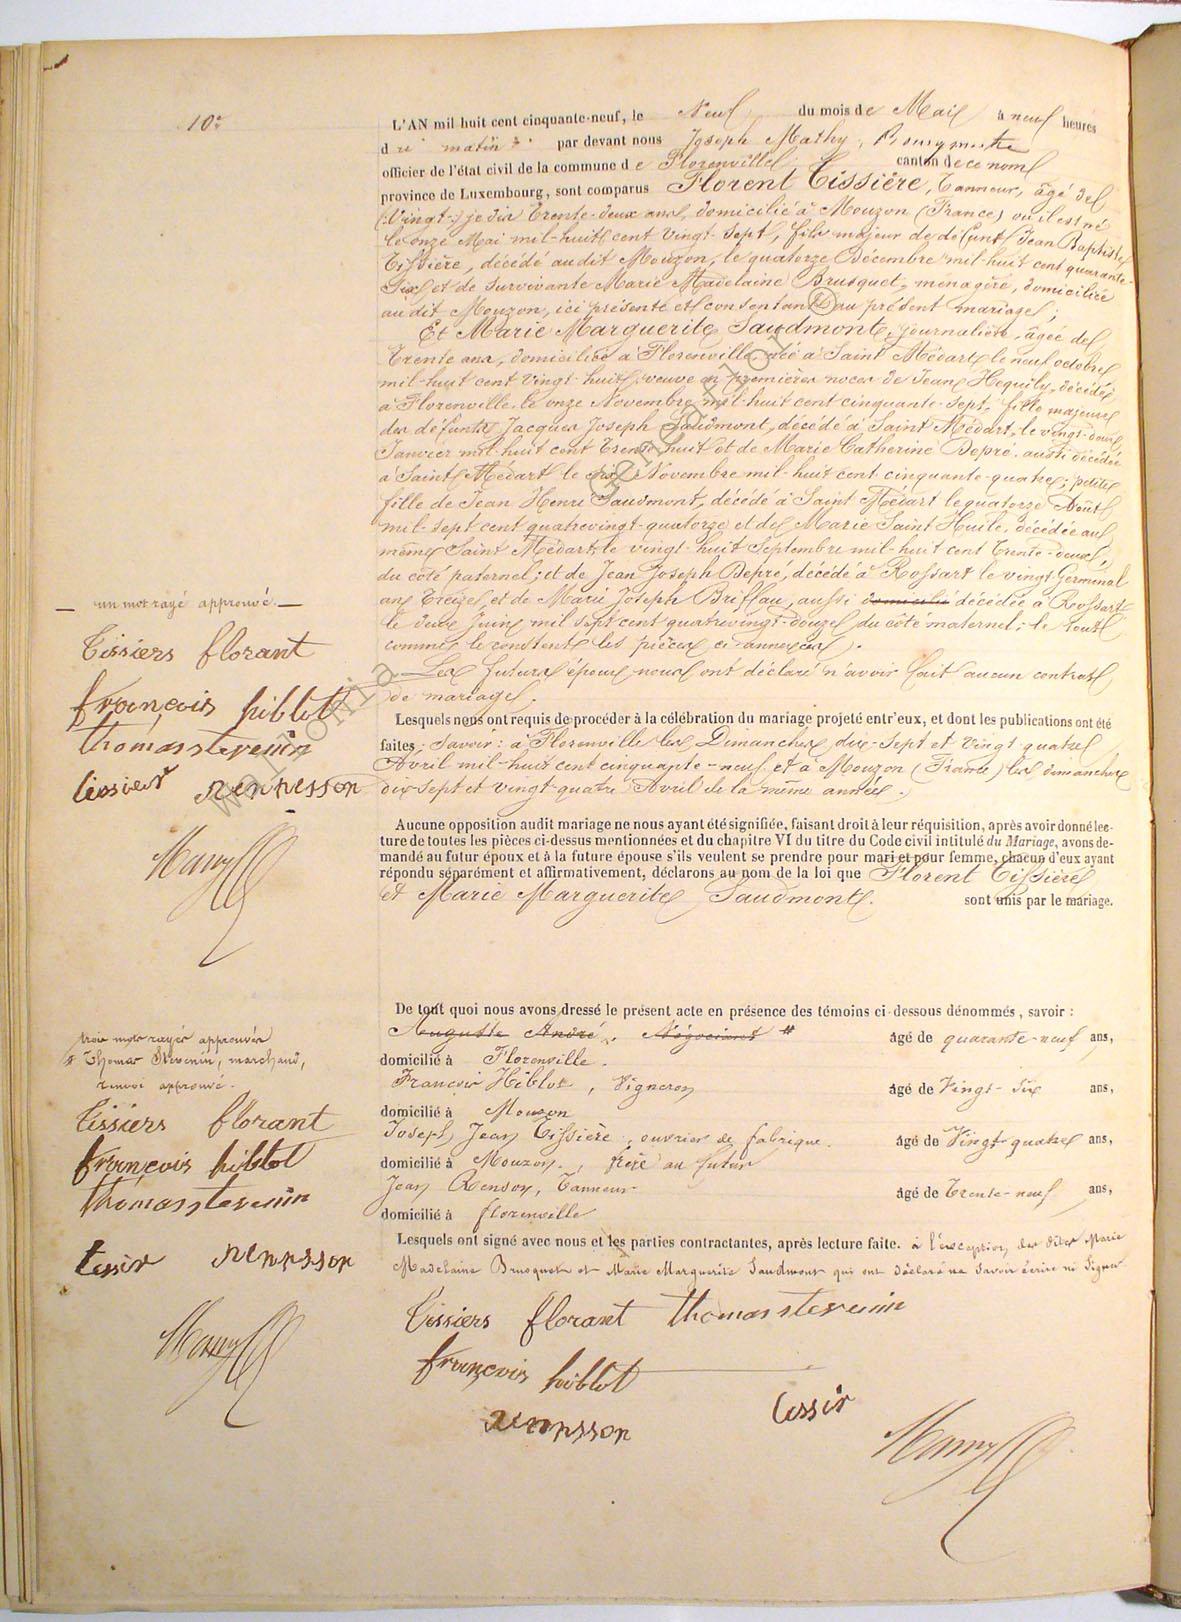 10e
L'AN mil huit cent cinquante-neuf, le Neuf du mois de Mai à neuf heures
du matin par devant nous Joseph Mathy, Bourgmestre
officier de l'état civil de la commune de Florenville canton de ce nom
province de Luxembourg, sont comparus Florent Tissière, Tanneur, âgé de
(:Vingt:) je dis Trente-deux ans, domicilié à Mouzon (France) où il est né
le onze Mai mil-huit cent vingt-sept, fils majeur de défunt Jean Baptiste
Tissière, décédé audit Mouzon, le quatorze Décembre mil-huit cent quarante-
six et de survivante Marie Madelaine Brusquet, ménagère, domiciliée
audit Mouzon, ici présente et consentante au présent mariage;
Et Marie Marguerite Saudmont, journalière, âgée de
Trente ans, domiciliée à Florenville, née à Saint Médart le neuf octobre
mil-huit cent vingt-huit, veuve en premières noces de Jean Hequily, décédé
à Florenville, le onze Novembre mil-huit cent cinquante-sept, fille majeure
des défunts Jacques Joseph Saudmont, décédé à Saint Médart, le vingt-deux
Janvier mil-huit cent Trente-huit et de Marie Catherine Depré, aussi décédée
à Saint Médart le dix Novembre mil-huit cent cinquante-quatre; petite
fille de Jean Henri Saudmont, décédé à Saint Médart le quatorze Août
mil-sept cent quatrevingt-quatorze et de Marie Saint Huile, décédée au
même Saint Médart, le vingt-huit Septembre mil-huit cent Trente-deux,
du côté paternel; et de Jean Joseph Depré, décédé à Rossart le vingt Germinal
an Treize, et de Marie Joseph Briflau, aussi domicilié décédée à Rossart
le deux Juin mil sept cent quatrevingt-douze du côté maternel; le tout
comme le constent les pièces ci-annexées.
Les futurs époux nous ont déclaré n'avoir fait aucun contrat
de mariage.
un mot rayé approuvé.
Tissiers florant
françois hiblot
thomasstevenin
tissier renpsson
Mathy
Lesquels nous ont requis de procéder à la célébration du mariage projeté entr'eux, et dont les publications ont été
faites, savoir: à Florenville les Dimanches dix-sept et vingt quatre
Avril mil-huit cent cinquante-neuf et à Mouzon (France) les dimanches
dix-sept et vingt-quatre Avril de la même année.
Aucune opposition audit mariage ne nous ayant été signifiée, faisant droit à leur réquisition, après avoir donné lec-
ture de toutes les pièces ci-dessus mentionnées et du chapitre VI du titre du Code civil intitulé du Mariage, avons de-
mandé au futur époux et à la future épouse s'ils veulent se prendre pour mari et pour femme, chacun d'eux ayant
répondu séparément et affirmativement, déclarons au nom de la loi que Florent Tissière
et Marie Marguerite Saudmont. sont unis par le mariage.
De tout quoi nous avons dressé le présent acte en présence des témoins ci-dessous dénommés, savoir :
Auguste André, Négociant # âgé de quarante-neuf ans,
domicilié à Florenville.
François Hiblot, Vigneron âgé de Vingt-six ans,
domicilié à Mouzon
Joseph Jean Tissière, ouvrier de fabrique. âgé de Vingt-quatre ans,
domicilié à Mouzon, frère au futur
Jean Renson, Tanneur âgé de Trente-neuf ans,
domicilié à florenville
Lesquels ont signé avec nous et les parties contractantes, après lecture faite. à l'exception des dites Marie
Madelaine Brusquet et Marie Marguerite Saudmont qui ont déclaré ne savoir écrire ni signer
trois mots rayés approuvés
# Thomas Stevenin, marchand,
renvoi approuvé.
Tissiers florant
françois hiblot
thomasstevenin
tissir renpsson
Mathy
Tissiers florant thomasstevenin
françois hiblot
renpsson tissir
Mathy
wallonia
Genealogy